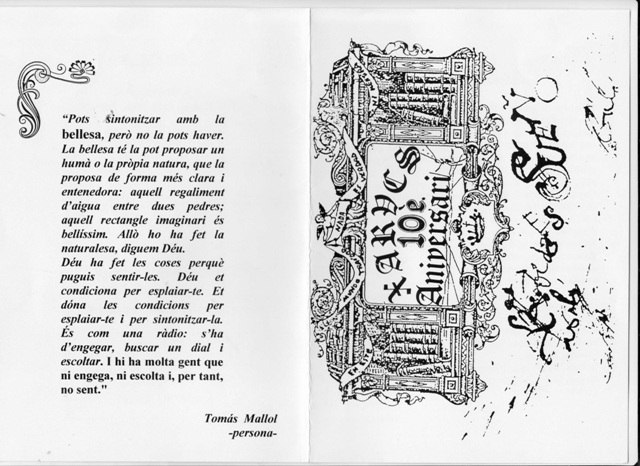 “Pots sintonitzar amb la
bellesa, però no la pots haver.
La bellesa té la pot proposar un
humà o la pròpia natura, que la
proposa de forma més clara i
entenedora: aquell regaliment
d'aigua entre dues pedres;
aquell rectangle imaginari és
bellíssim. Allò ho ha fet la
naturalesa, diguem Déu.
Déu ha fet les coses perquè
puguis sentir-les. Déu et
condiciona per esplaiar-te. Et
dóna les condicions per
esplaiar-te i per sintonitzar-la.
És com una ràdio: s'ha
d'engegar, buscar un dial i
escoltar. I hi ha molta gent que
ni engega, ni escolta i, per tant,
no sent."
Tomás Mallol
-persona-
ARVCS
10è.
Aniversari